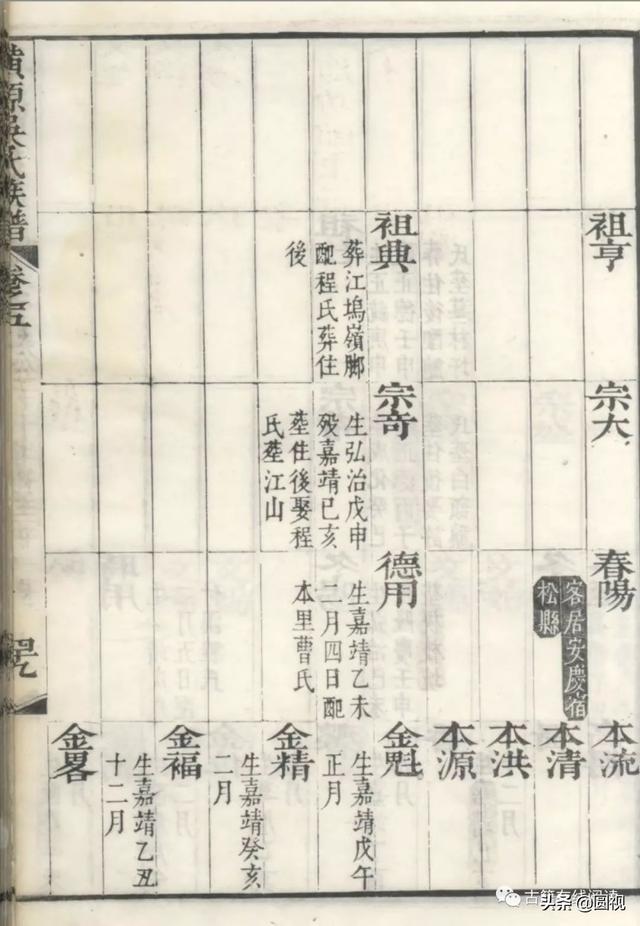 黃源吳氏族譜
卷之五
祖亨
祖典
葬江塢嶺脚
配程氏葬住
後
宗大
宗奇
生弘治戊申
歿嘉靖己亥
塟住後娶程
氏塟江山
春陽
客居安慶宿
松縣
德用
生嘉靖乙未
二月四日配
本里曹氏
本流
本清
本洪
本源
金魁
生嘉靖戊午
正月
金精
生嘉靖癸亥
二月
金福
生嘉靖乙丑
十二月
金畧
头条 @圆视